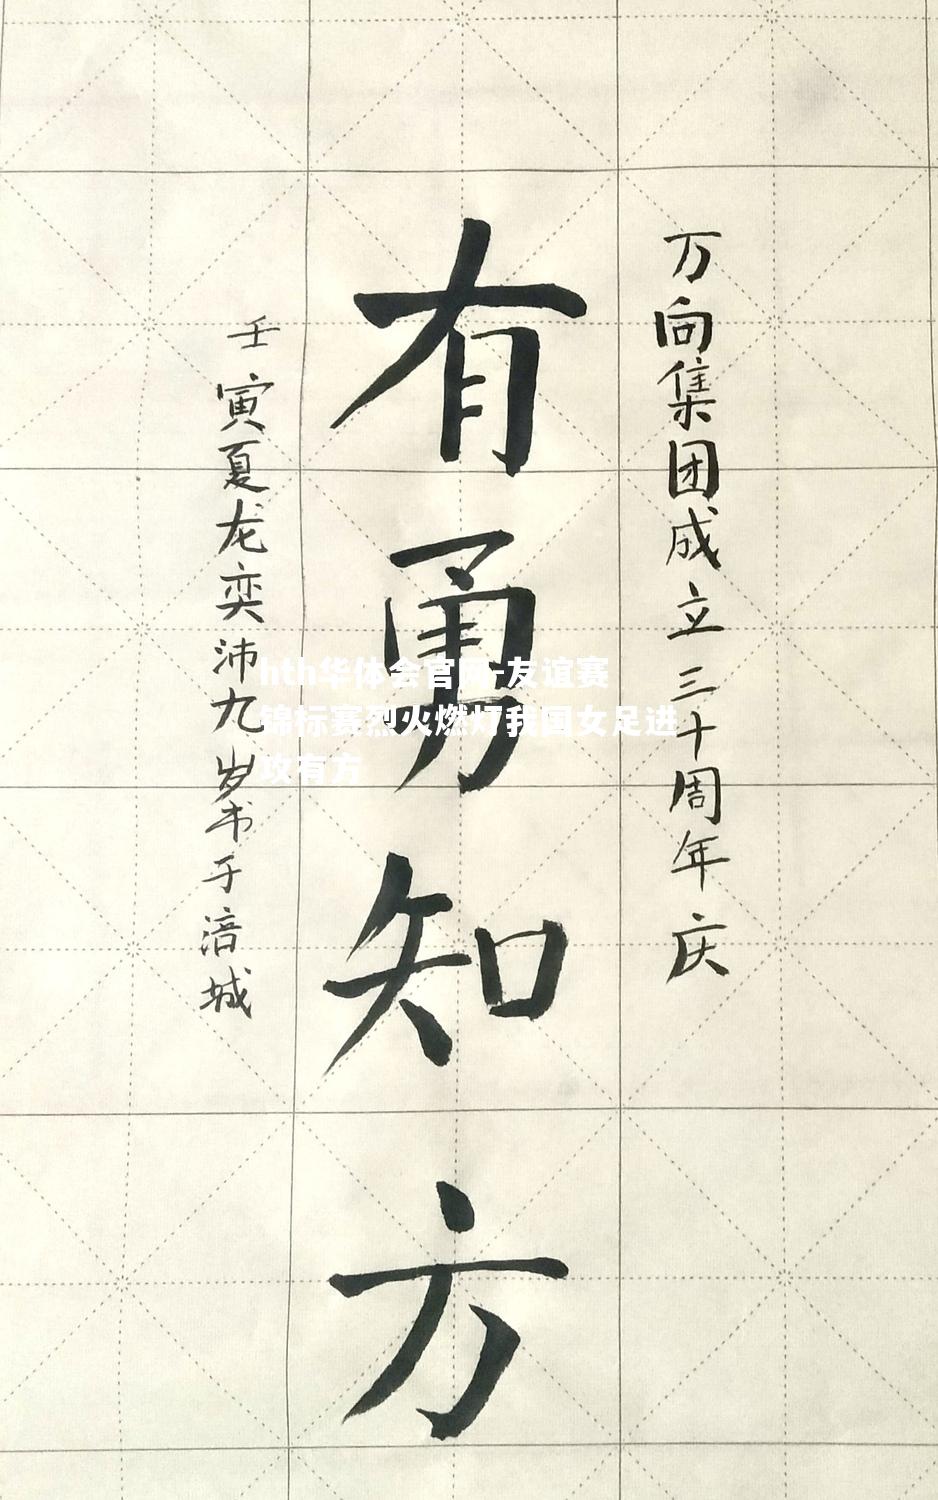 万向集团成立三十周年庆
有勇知方
壬寅夏龙奕沛九岁书于涪城
hth华体会官网-友谊赛
锦标赛烈火燃灯我国女足进
攻有方